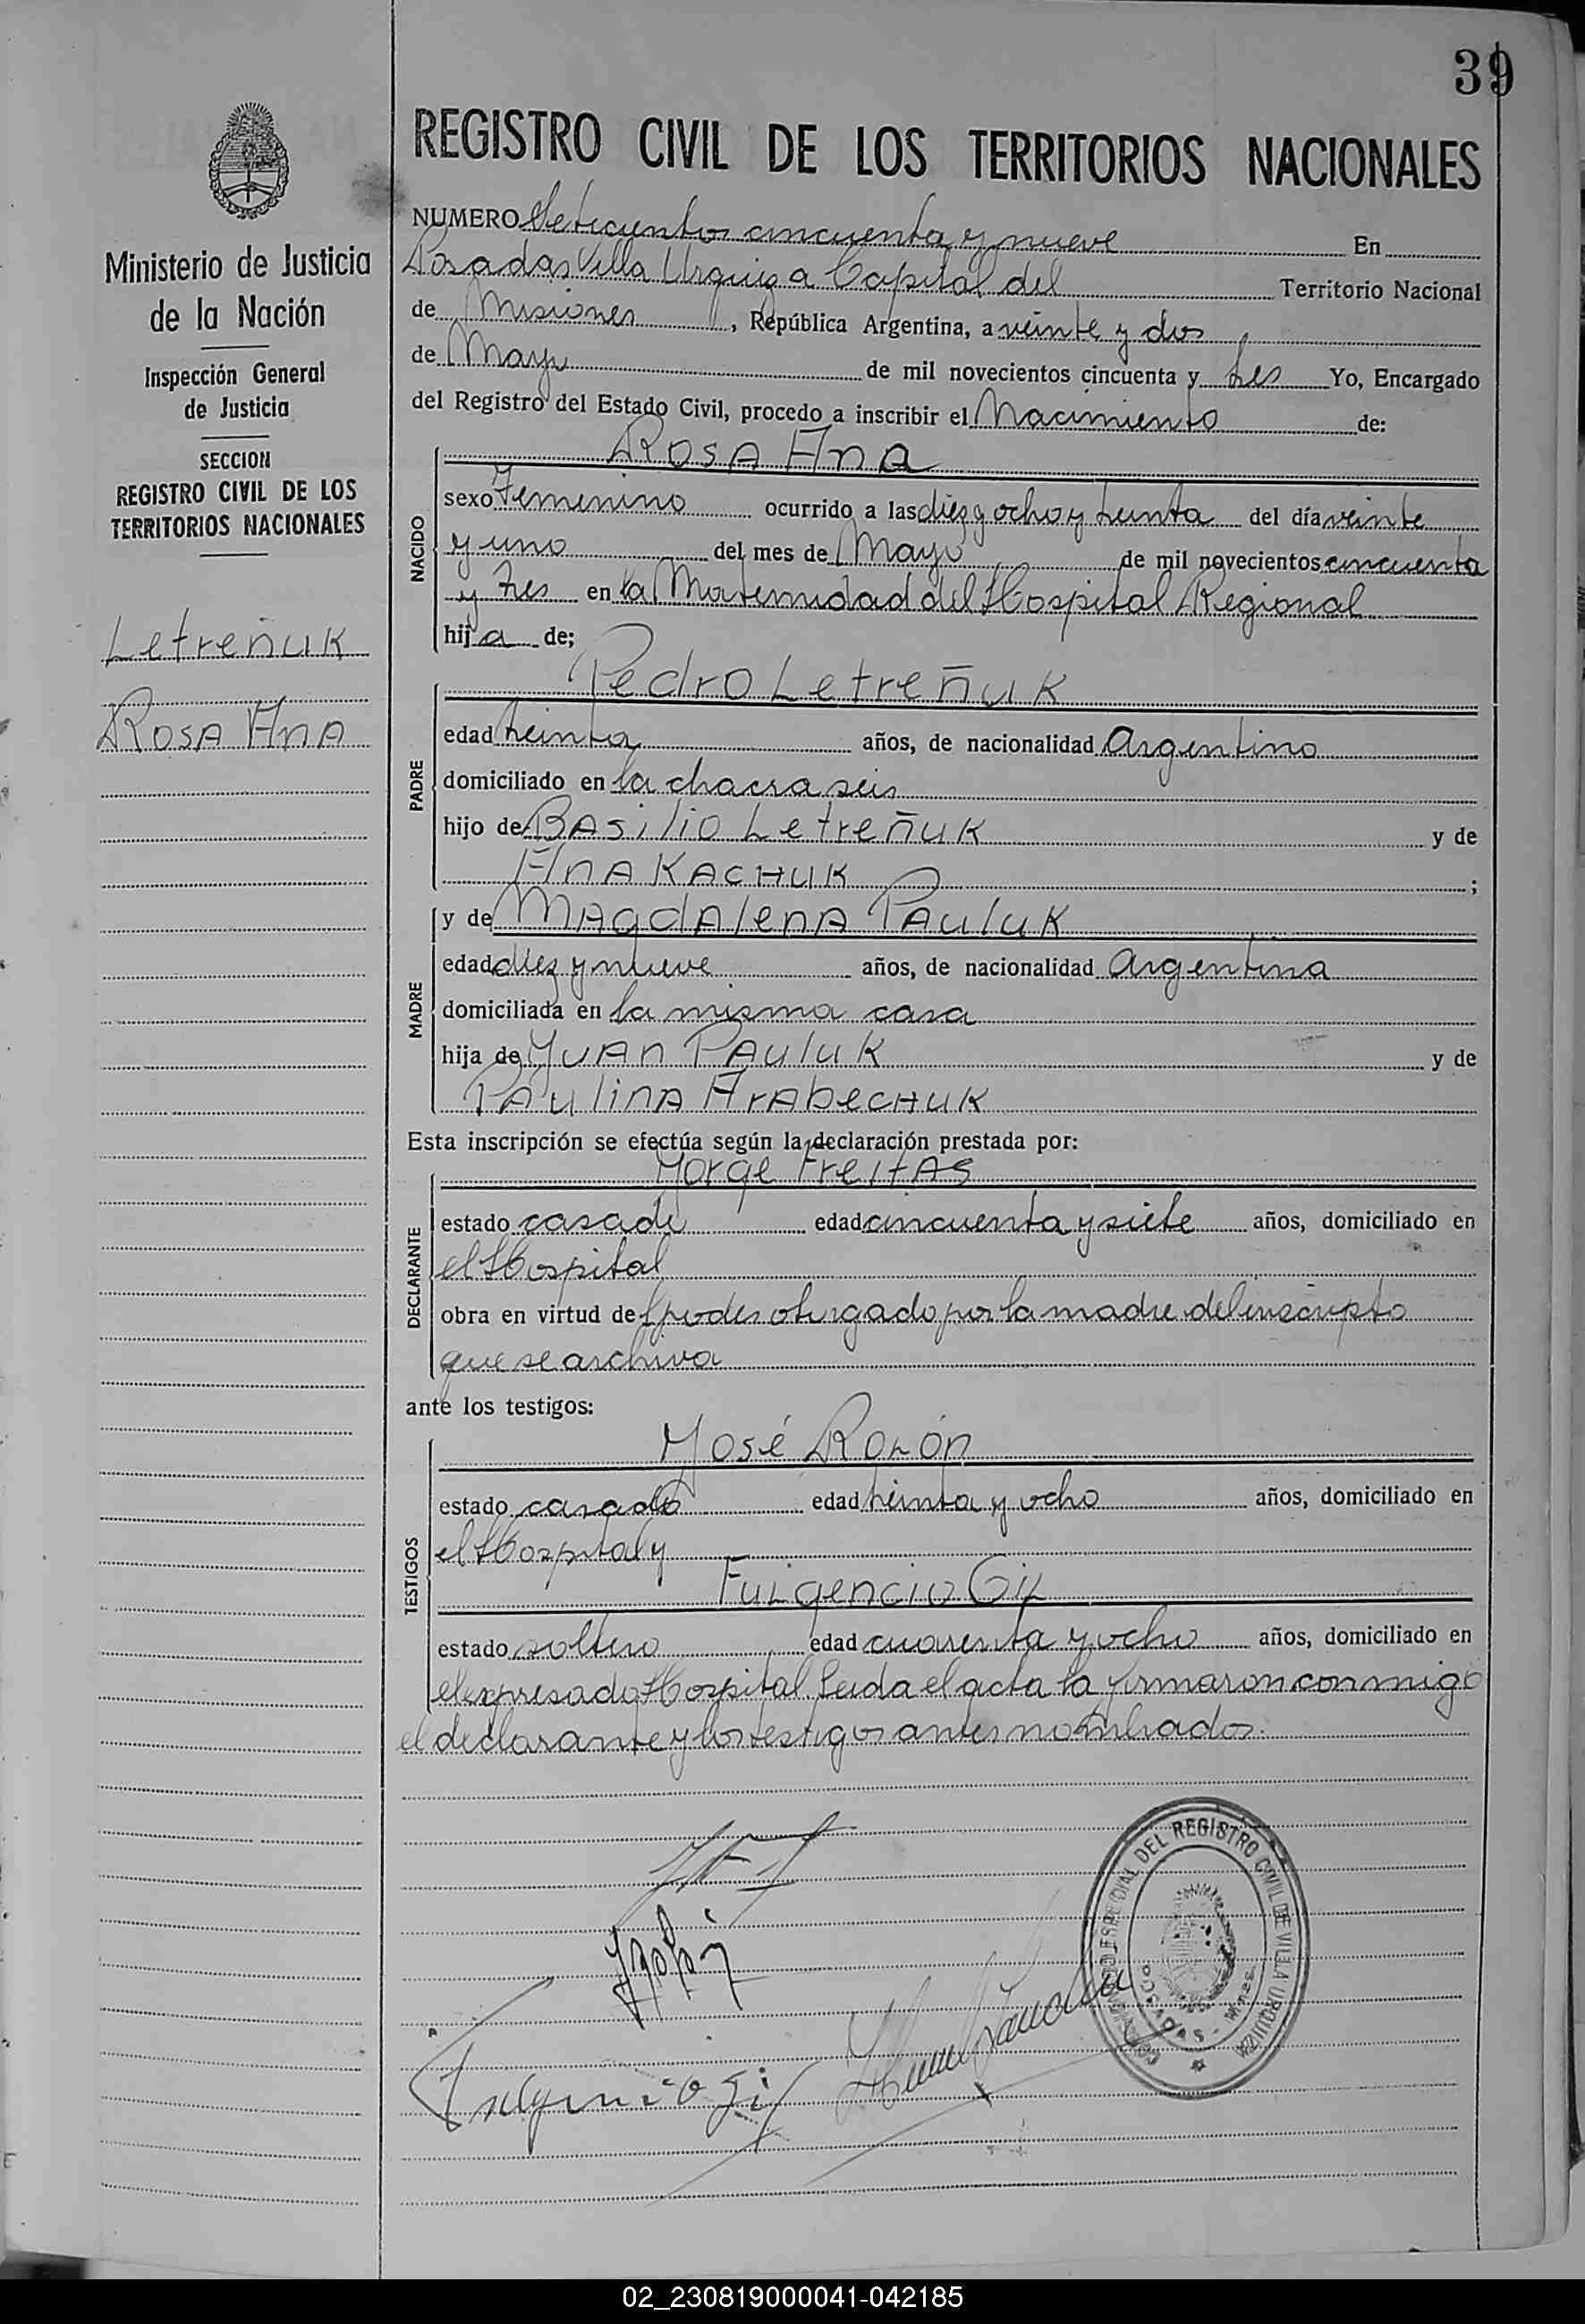 39
REGISTRO CIVIL DE LOS TERRITORIOS NACIONALES
Ministerio de Justicia
de la Nación
Inspección General
de Justicia
SECCION
REGISTRO CIVIL DE LOS
TERRITORIOS NACIONALES
Letreñuk
Rosa Ana
NUMERO Seteciento cincuenta y nueve En
Posadas Villa Urquiza Capital del Territorio Nacional
de Misiones, República Argentina, a veinte y dos
de Mayo de mil novecientos cincuenta y tres Yo, Encargado
del Registro del Estado Civil, procedo a inscribir el Nacimiento de:
Rosa Ana
NACIDO
sexo Femenino ocurrido a las diez y ocho y treinta del día veinte
y uno del mes de Mayo de mil novecientos cincuenta
y tres en la Maternidad del Hospital Regional
hija de;
Pedro Letreñuk
PADRE
edad treinta años, de nacionalidad Argentino
domiciliado en la chacra seis
hijo de Basilio Letreñuk y de
Ana Kachuk;
MADRE
y de Magdalena Pauluk
edad diez y nueve años, de nacionalidad Argentina
domiciliada en la misma casa
hija de Juan Pauluk y de
Paulina Arabechuk
Esta inscripción se efectúa según la declaración prestada por:
Jorge Freitas
DECLARANTE
estado casado edad cincuenta y siete años, domiciliado en
el Hospital
obra en virtud del poder otorgado por la madre del inscripto
que se archiva
ante los testigos:
José Rolón
TESTIGOS
estado casado edad treinta y ocho años, domiciliado en
el Hospital y
Fulgencio Gil
estado soltero edad cuarenta y ocho años, domiciliado en
el expresado Hospital. Leida el acta la firmaron conmigo
el declarante y los testigos antes nombrados.
Fulgencio Gil
DEL REGISTRO CIVIL DE VILLA URQUIZA
POSADAS - Mnes.
02_230819000041-042185